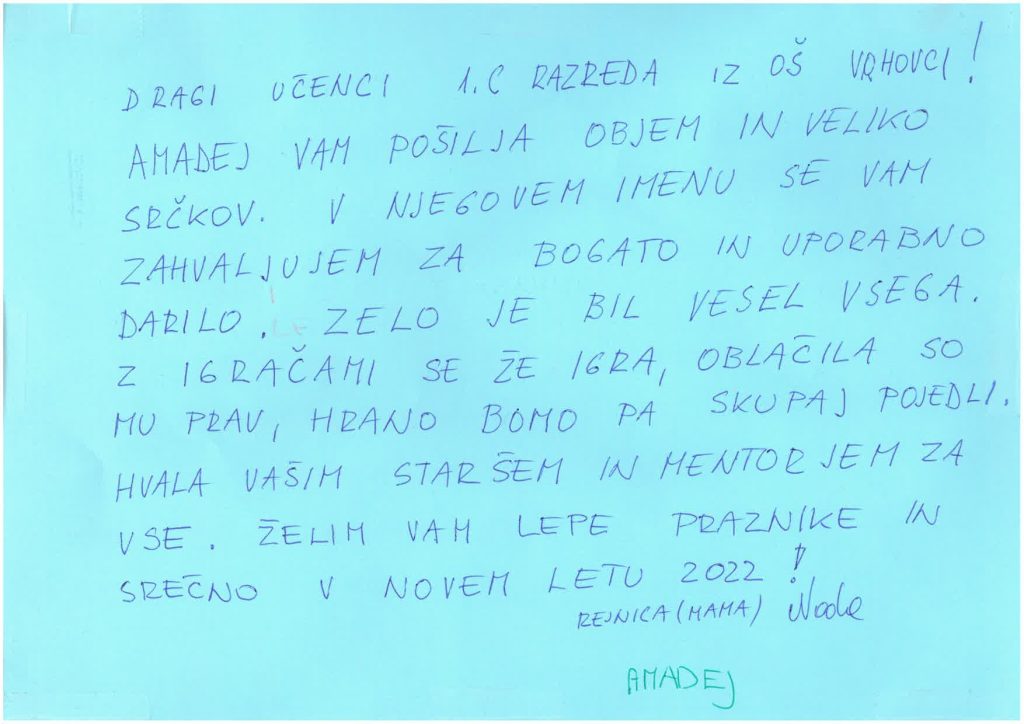 DRAGI UČENCI 1.C RAZREDA IZ OŠ VRHOVCI!
AMADEJ VAM POŠILJA OBJEM IN VELIKO
SRČKOV. V NJEGOVEM IMENU SE VAM
ZAHVALJUJEM ZA BOGATO IN UPORABNO
DARILO. ZELO JE BIL VESEL VSEGA.
Z IGRAČAMI SE ŽE IGRA, OBLAČILA SO
MU PRAV, HRANO BOMO PA SKUPAJ POJEDLI.
HVALA VAŠIM STARŠEM IN MENTORJEM ZA
VSE. ŽELIM VAM LEPE PRAZNIKE IN
SREČNO V NOVEM LETU 2022!
REJNICA (MAMA) Nada
AMADEJ